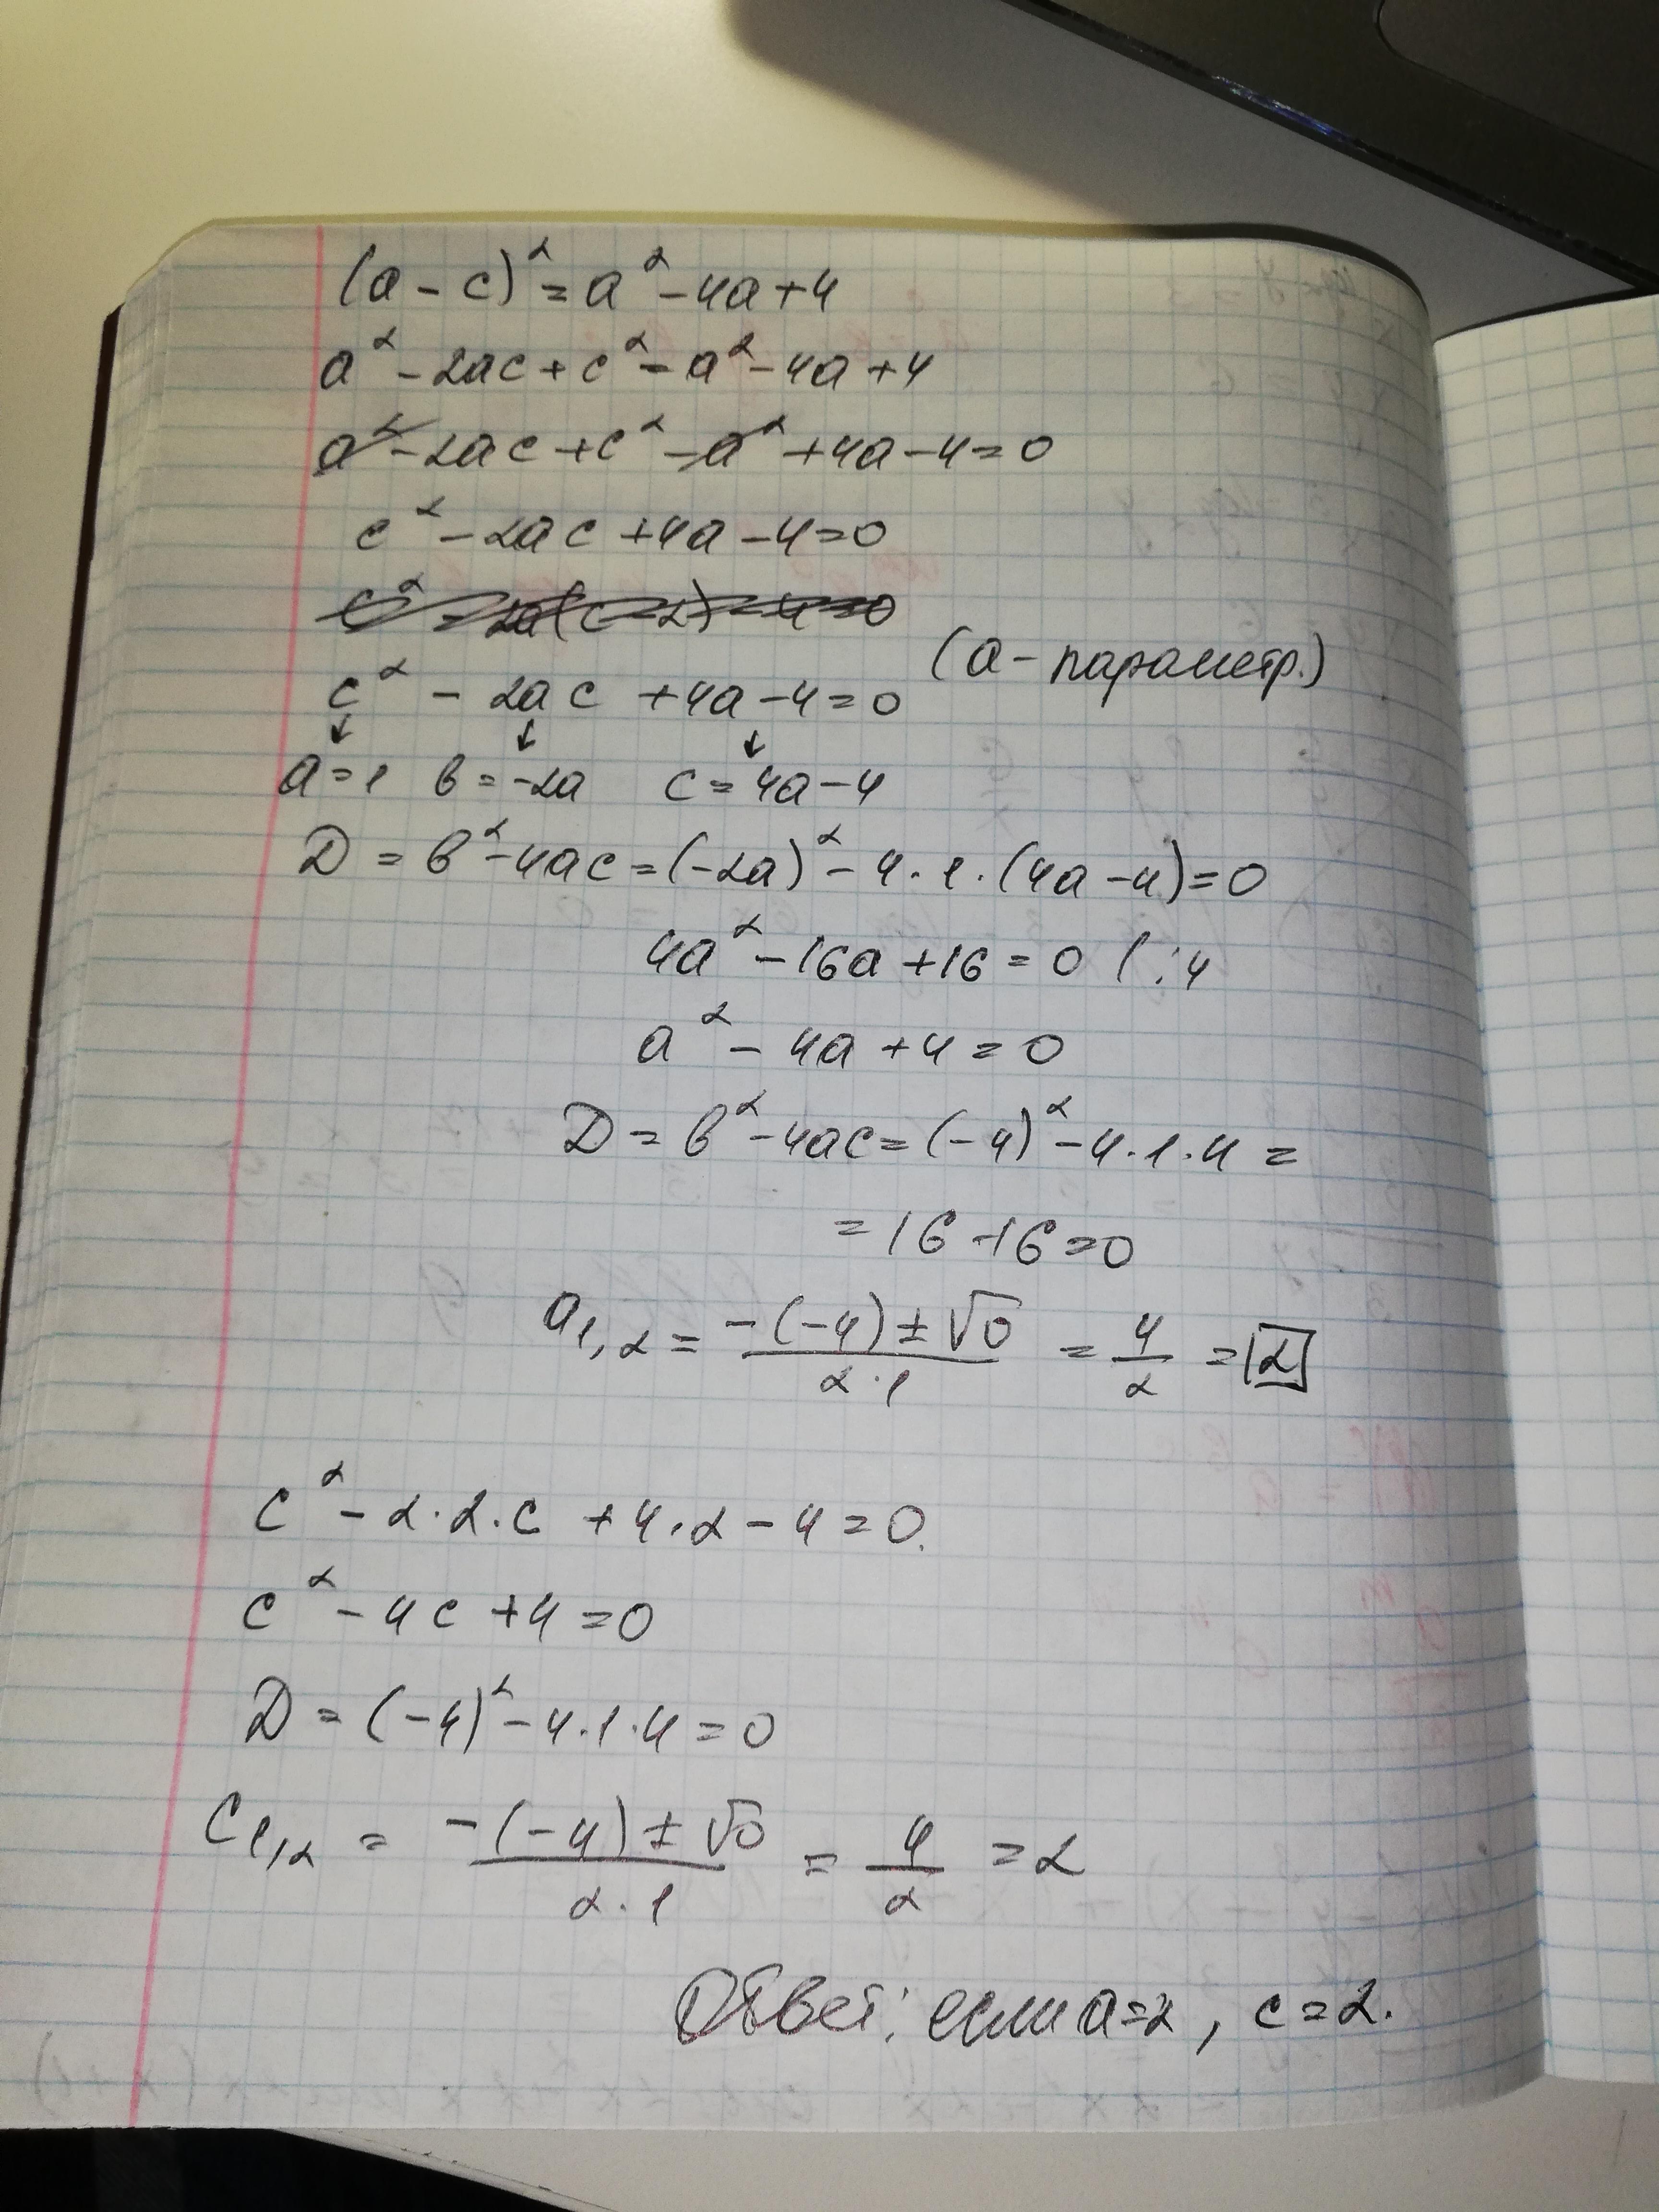 (a - c)² = a² - 4a + 4
a² - 2ac + c² = a² - 4a + 4
a² - 2ac + c² - a² + 4a - 4 = 0
c² - 2ac + 4a - 4 = 0
c² - 2a(c - 2) - 4 = 0
(a - параметр.)
c² - 2ac + 4a - 4 = 0
↓ ↓ ↓
a = 1 в = -2a c = 4a - 4
D = в² - 4ac = (-2a)² - 4 · 1 · (4a - 4) = 0
4a² - 16a + 16 = 0 ( : 4
a² - 4a + 4 = 0
D = в² - 4ac = (-4)² - 4 · 1 · 4 =
= 16 - 16 = 0
a₁,₂ = (-(-4) ± √0) / (2 · 1) = 4/2 = 2
c² - 2 · 2 · c + 4 · 2 - 4 = 0.
c² - 4c + 4 = 0
D = (-4)² - 4 · 1 · 4 = 0
c₁,₂ = (-(-4) ± √0) / (2 · 1) = 4/2 = 2
Ответ: если a = 2, c = 2.